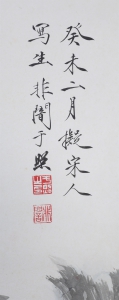 癸未二月擬宋人
寫生非闇于照